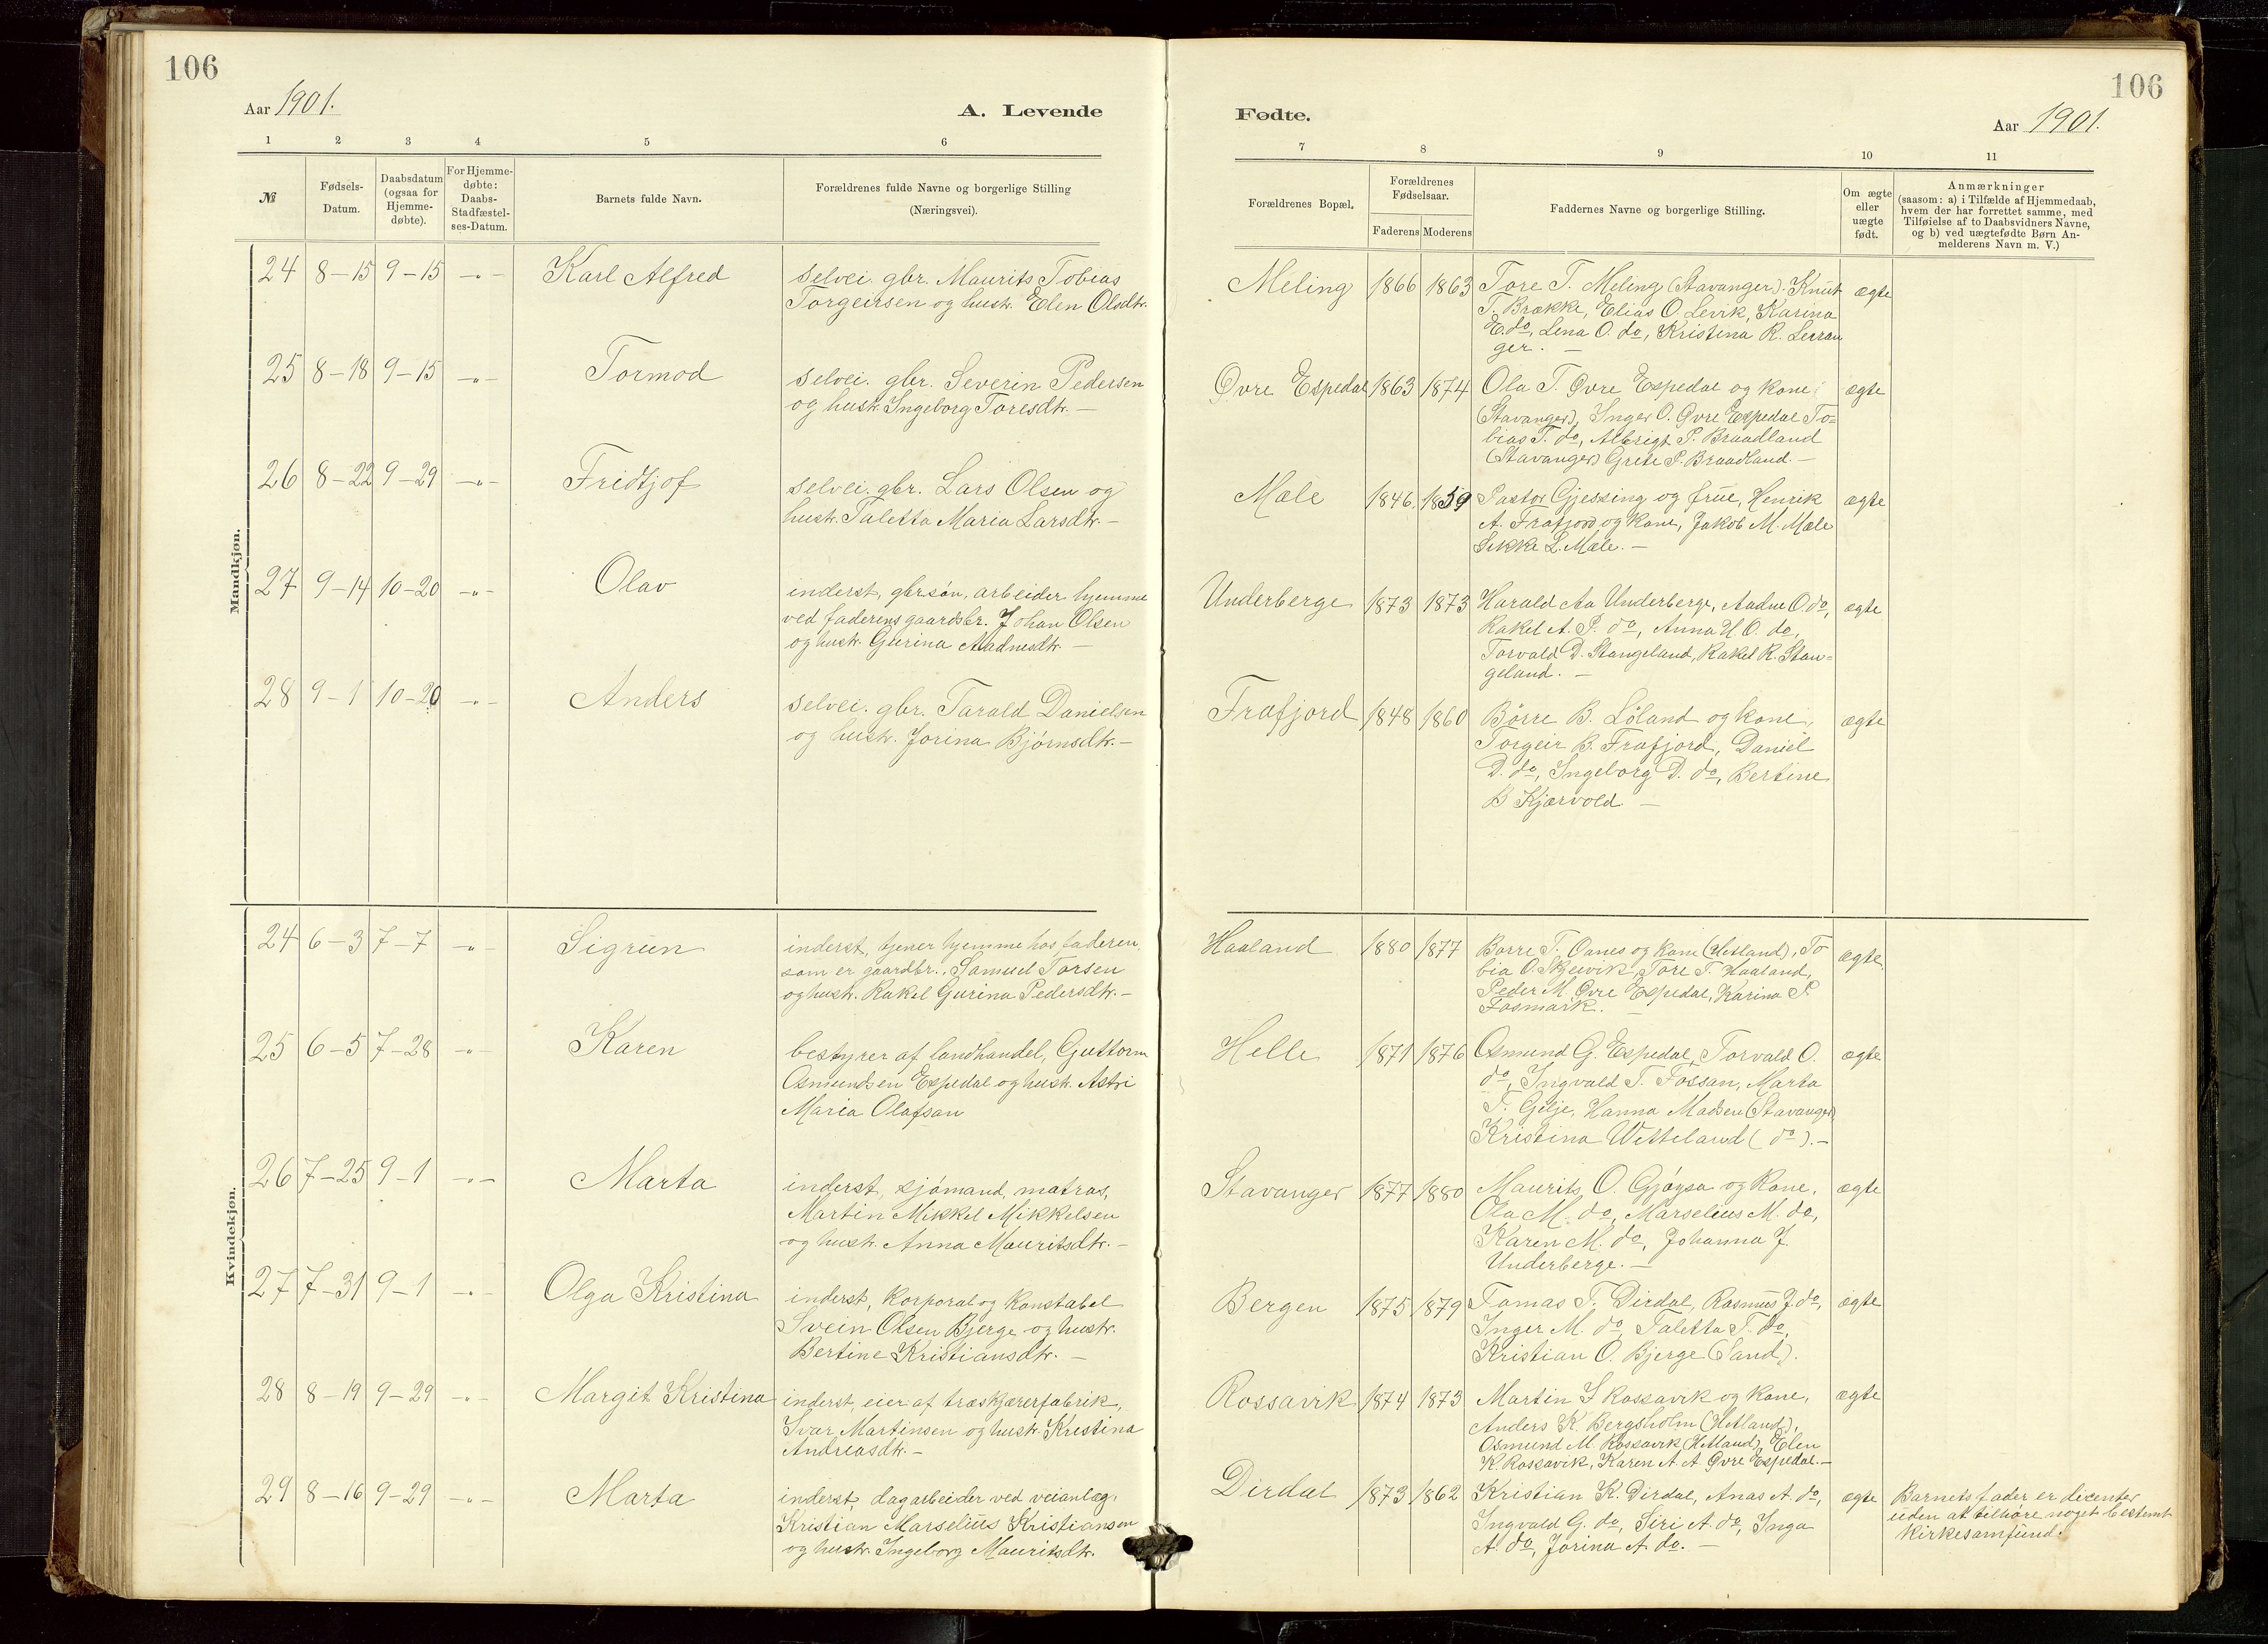 106
Aar 1901.
A. Levende
1 2 3 4 5 6
№ Fødsels-Datum. Daabsdatum (ogsaa for Hjemme-døbte). For Hjemme-døbte: Daabs-Stadfæstel-ses-Datum. Barnets fulde Navn. Forældrenes fulde Navne og borgerlige Stilling (Næringsvei).
Mandkjøn.
24 8-15 9-15 -"- Karl Alfred selvei. gbr. Maurits Tobias
Torgeirsen og hustr. Elen Olsdtr.
25 8-18 9-15 -"- Tormod selvei. gbr. Severin Pedersen
og hustr. Ingeborg Toresdtr. —
26 8-22 9-29 -"- Fridtjof selvei. gbr. Lars Olsen og
hustr. Taletta Maria Larsdtr. —
27 9-14 10-20 -"- Olav inderst, gbrsøn, arbeider hjemme
ved faderens gaardsbr. Johan Olsen
og hustr. Gurina Aadnesdtr. —
28 9-1 10-20 -"- Anders selvei. gbr. Tarald Danielsen
og hustr. Jorina Bjørnsdtr. —
Kvindekjøn.
24 6-3 7-7 -"- Sigrun inderst, tjener hjemme hos faderen,
som er gaardbr., Samuel Torsen
og hustr. Rakel Gurina Pedersdtr. —
25 6-5 7-28 -"- Karen bestyrer af landhandel, Guttorm
Osmundsen Espedal og hustr. Astri
Maria Olafsan
26 7-25 9-1 -"- Marta inderst, sjómand, matros,
Martin Mikkel Mikkelsen
og hustr. Anna Mauritsdtr. —
27 7-31 9-1 -"- Olga Kristina inderst, korporal og konstabel
Svein Olsen Bjerge og hustr.
Bertine Kristiansdtr. —
28 8-19 9-29 -"- Margit Kristina inderst, eier af træskjærerfabrik,
Ivar Martinsen og hustr. Kristina
Andreasdtr. —
29 8-16 9-29 -"- Marta inderst, dagarbeider ved veianlæg,
Kristian Marselius Kristiansen
og hustr. Ingeborg Mauritsdtr.
106
Fødte.
Aar 1901.
7 8 9 10 11
Forældrenes Bopæl. Forældrenes Fødselsaar. Faderens Moderens Faddernes Navne og borgerlige Stilling. Om ægte eller uægte født. Anmærkninger
(saasom: a) i Tilfælde af Hjemmedaab,
hvem der har forrettet samme, med
Tilføielse af to Daabsvidners Navne,
og b) ved uægtefødte Børn An-
melderens Navn m. V.)
Meling 1866 1863 Tore T. Meling (Stavanger). Knut ægte
T. Brække, Elias O. Levik, Karina
E. do, Lena O. do, Kristina R. Leeran
ger. —
Øvre Espedal 1863 1874 Ola T. Øvre Espedal og kone ægte
(Stavanger), Inger O. Øvre Espedal To=
bias T. do, Albrigt P. Braadland
(Stavanger) Grete P. Braadland. —
Mæle 1846 1859 Pastor Gjessing og frue, Henrik ægte
A. Frafjord og kone, Jakob M. Mæle
Sikke L. Mæle. —
Underberge 1873 1873 Harald Aa Underberge, Aadne O. do, ægte
Rakel A. P. do, Anna H. O. do,
Torvald D. Stangeland, Rakel R. Stan=
geland. —
Frafjord 1848 1860 Börre B. Löland og kone, ægte
Torgeir B. Frafjord, Daniel
D. do, Ingeborg D. do, Bertine
B Kjærvold. —
Haaland 1880 1877 Borre T. Oanes og kone (Hetland), To ægte.
bia O. Skjervik, Tore T. Haaland,
Peder M. Øvre Espedal, Karina P.
Fosmark. —
Helle 1871 1876 Osmund G. Espedal, Torvald O. ægte
do, Ingvald T. Fossan, Marta
T. Gilje, Hanna Madsen (Stavanger)
Kristina Wetteland (do). —
Stavanger 1877 1880 Maurits O. Gjøysa og kone, ægte
Ola M. do, Marselius M. do,
Karen M. do, Johanna J.
Underberge. —
Bergen 1875 1879 Tomas T. Dirdal, Rasmus J. do, ægte
Inger M. do, Taletta T. do,
Kristian O. Bjerge (Sand).
Rossavik 1874 1873 Martin I Rossavik og kone, ægte
Anders K. Bergsholm (Hetland),
Osmund M. Rossavik (Hetland), Elen
K. Rossavik, Karen A. A Øvre Espedal. —
Dirdal 1873 1862 Kristian K. Dirdal, Anas A. do, ægte Barnets fader er dicenter
Ingvald G. do, Siri A. do, Inga uden at tilhøre noget bestemt
A. do, Jorina A. do. — kirkesamfund.